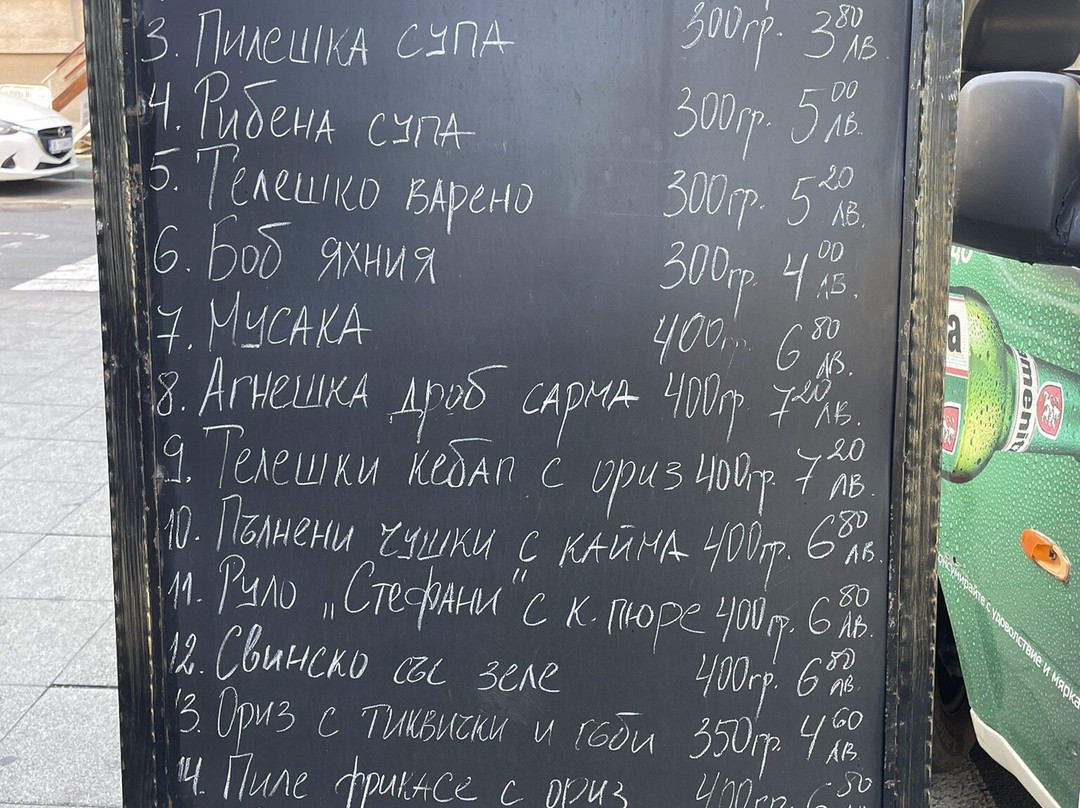 3. Пилешка супа 300гр. 3 80 лв.
4. Рибена супа 300гр. 5 00 лв.
5. Телешко варено 300гр. 5 20 лв.
6. Боб яхния 300гр. 4 00 лв.
7. Мусака 400гр. 6 80 лв.
8. Агнешка дроб сарма 400гр 7 20 лв.
9. Телешки кебап с ориз 400гр. 7 20 лв.
10. Пълнени чушки с кайма 400гр. 6 80 лв.
11. Руло „Стефани" с к. пюре 400гр. 6 80 лв.
12. Свинско със зеле 400гр. 6 80 лв.
13. Ориз с тиквички и гъби 350гр. 4 60 лв.
14. Пиле фрикасе с ориз 400гр. 80
с удоволствие и мярка